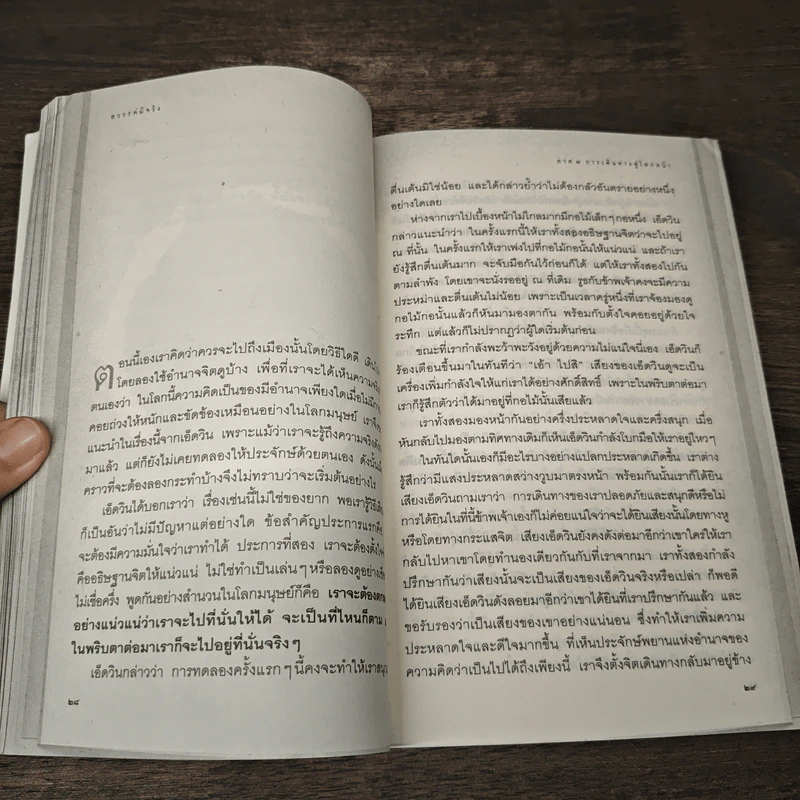 สวรรค์มีจริง
ตอนนี้เองเราคิดว่าควรจะไปถึงเมืองนั้นโดยวิธีใดดี
โดยลองใช้อำนาจจิตดูบ้าง เพื่อที่เราจะได้เห็นความจริง
ตนเองว่า ในโลกนี้ความคิดเป็นของมีอำนาจเพียงใดเมื่อไม่มี
คอยถ่วงให้หนักและขัดข้องเหมือนอย่างในโลกมนุษย์
แนะนำในเรื่องนี้จากเอ็ดวิน เพราะแม้ว่าเราจะรู้ถึงความจริง
มาแล้ว แต่ก็ยังไม่เคยทดลองให้ประจักษ์ด้วยตนเอง ดังนั้น
คราวที่จะต้องลองกระทำบ้างจึงไม่ทราบว่าจะเริ่มต้นอย่างไร
เอ็ดวินได้บอกเราว่า เรื่องเช่นนี้ไม่ใช่ของยาก พอเรารู้วิธี
ก็เป็นอันว่าไม่มีปัญหาแต่อย่างใด ข้อสำคัญประการแรกคือ
จะต้องมีความมั่นใจว่าเราทำได้ ประการที่สอง เราจะต้องตั้ง
คืออธิษฐานจิตให้แน่วแน่ ไม่ใช่ทำเป็นเล่นๆ หรือลองดูอย่าง
ไม่เชื่อครึ่ง พูดกันอย่างสำนวนในโลกมนุษย์ก็คือ เราจะต้อง
อย่างแน่วแน่ว่าเราจะไปที่นั่นให้ได้ จะเป็นที่ไหนก็ตาม
ในพริบตาต่อมาเราก็จะไปอยู่ที่นั่นจริงๆ
เอ็ดวินกล่าวว่า การทดลองครั้งแรกๆ นี้คงจะทำให้เรา
๒๘
ภาค ๑ การเดินทางสู่โลกหน้า
ตื่นเต้นมิใช่น้อย และได้กล่าวย้ำว่าไม่ต้องกลัวอันตรายอย่างหนึ่ง
อย่างใดเลย
ห่างจากเราไปเบื้องหน้าไม่ไกลมากมีกอไม้เล็กๆ กอหนึ่ง เอ็ดวิน
กล่าวแนะนำว่า ในครั้งแรกนี้ให้เราทั้งสองอธิษฐานจิตว่าจะไปอยู่
ณ ที่นั้น ในครั้งแรกให้เราเพ่งไปที่กอไม้กอนั้นให้แน่วแน่ และถ้าเรา
ยังรู้สึกตื่นเต้นมาก จะจับมือกันไว้ก่อนก็ได้ แต่ให้เราทั้งสองไปกัน
ตามลำพัง โดยเขาจะนั่งรออยู่ ณ ที่เดิม รูธกับข้าพเจ้าคงจะมีความ
ประหม่าและตื่นเต้นไม่น้อย เพราะเป็นเวลาครู่หนึ่งที่เราจ้องมองดู
กอไม้กอนั้นแล้วก็หันมามองตากัน พร้อมกับตั้งใจคอยอยู่ด้วยใจ
ระทึก แต่แล้วก็ไม่ปรากฏว่าผู้ใดเริ่มต้นก่อน
ขณะที่เรากำลังพะว้าพะวังอยู่ด้วยความไม่แน่ใจนี่เอง เอ็ดวินก็
ร้องเตือนขึ้นมาในทันทีว่า “เอ้า ไปสิ” เสียงของเอ็ดวินดูจะเป็น
เครื่องเพิ่มกำลังใจให้แก่เราได้อย่างศักดิ์สิทธิ์ เพราะในพริบตาต่อมา
เราก็รู้สึกตัวว่าได้มาอยู่ที่กอไม้นั้นเสียแล้ว
เราทั้งสองมองหน้ากันอย่างครึ่งประหลาดใจและครึ่งสนุก เมื่อ
หันกลับไปมองตามทิศทางเดิมก็เห็นเอ็ดวินกำลังโบกมือให้เราอยู่ไหวๆ
ในทันใดนั้นเองก็มีอะไรบางอย่างแปลกประหลาดเกิดขึ้น เราต่าง
รู้สึกว่ามีแสงประหลาดสว่างวูบมาตรงหน้า พร้อมกันนั้นเราก็ได้ยิน
เสียงเอ็ดวินถามเราว่า การเดินทางของเราปลอดภัยและสนุกดีหรือไม่
การได้ยินในที่นี้ข้าพเจ้าเองก็ไม่ค่อยแน่ใจว่าจะได้ยินเสียงนั้นโดยทางหู
หรือโดยทางกระแสจิต เสียงเอ็ดวินยังคงดังต่อมาอีกว่าเขาใคร่ให้เรา
กลับไปหาเขาโดยทำนองเดียวกันกับที่เราจากมา เราทั้งสองกำลัง
ปรึกษากันว่าเสียงนั้นจะเป็นเสียงของเอ็ดวินจริงหรือเปล่า ก็พอดี
ได้ยินเสียงเอ็ดวินดังลอยมาอีกว่าเขาได้ยินที่เราปรึกษากันแล้ว และ
ขอรับรองว่าเป็นเสียงของเขาอย่างแน่นอน ซึ่งทำให้เราเพิ่มความ
ประหลาดใจและดีใจมากขึ้น ที่เห็นประจักษ์พยานแห่งอำนาจของ
ความคิดว่าเป็นไปได้ถึงเพียงนี้ เราจึงตั้งจิตเดินทางกลับมาอยู่ข้าง
๒๙